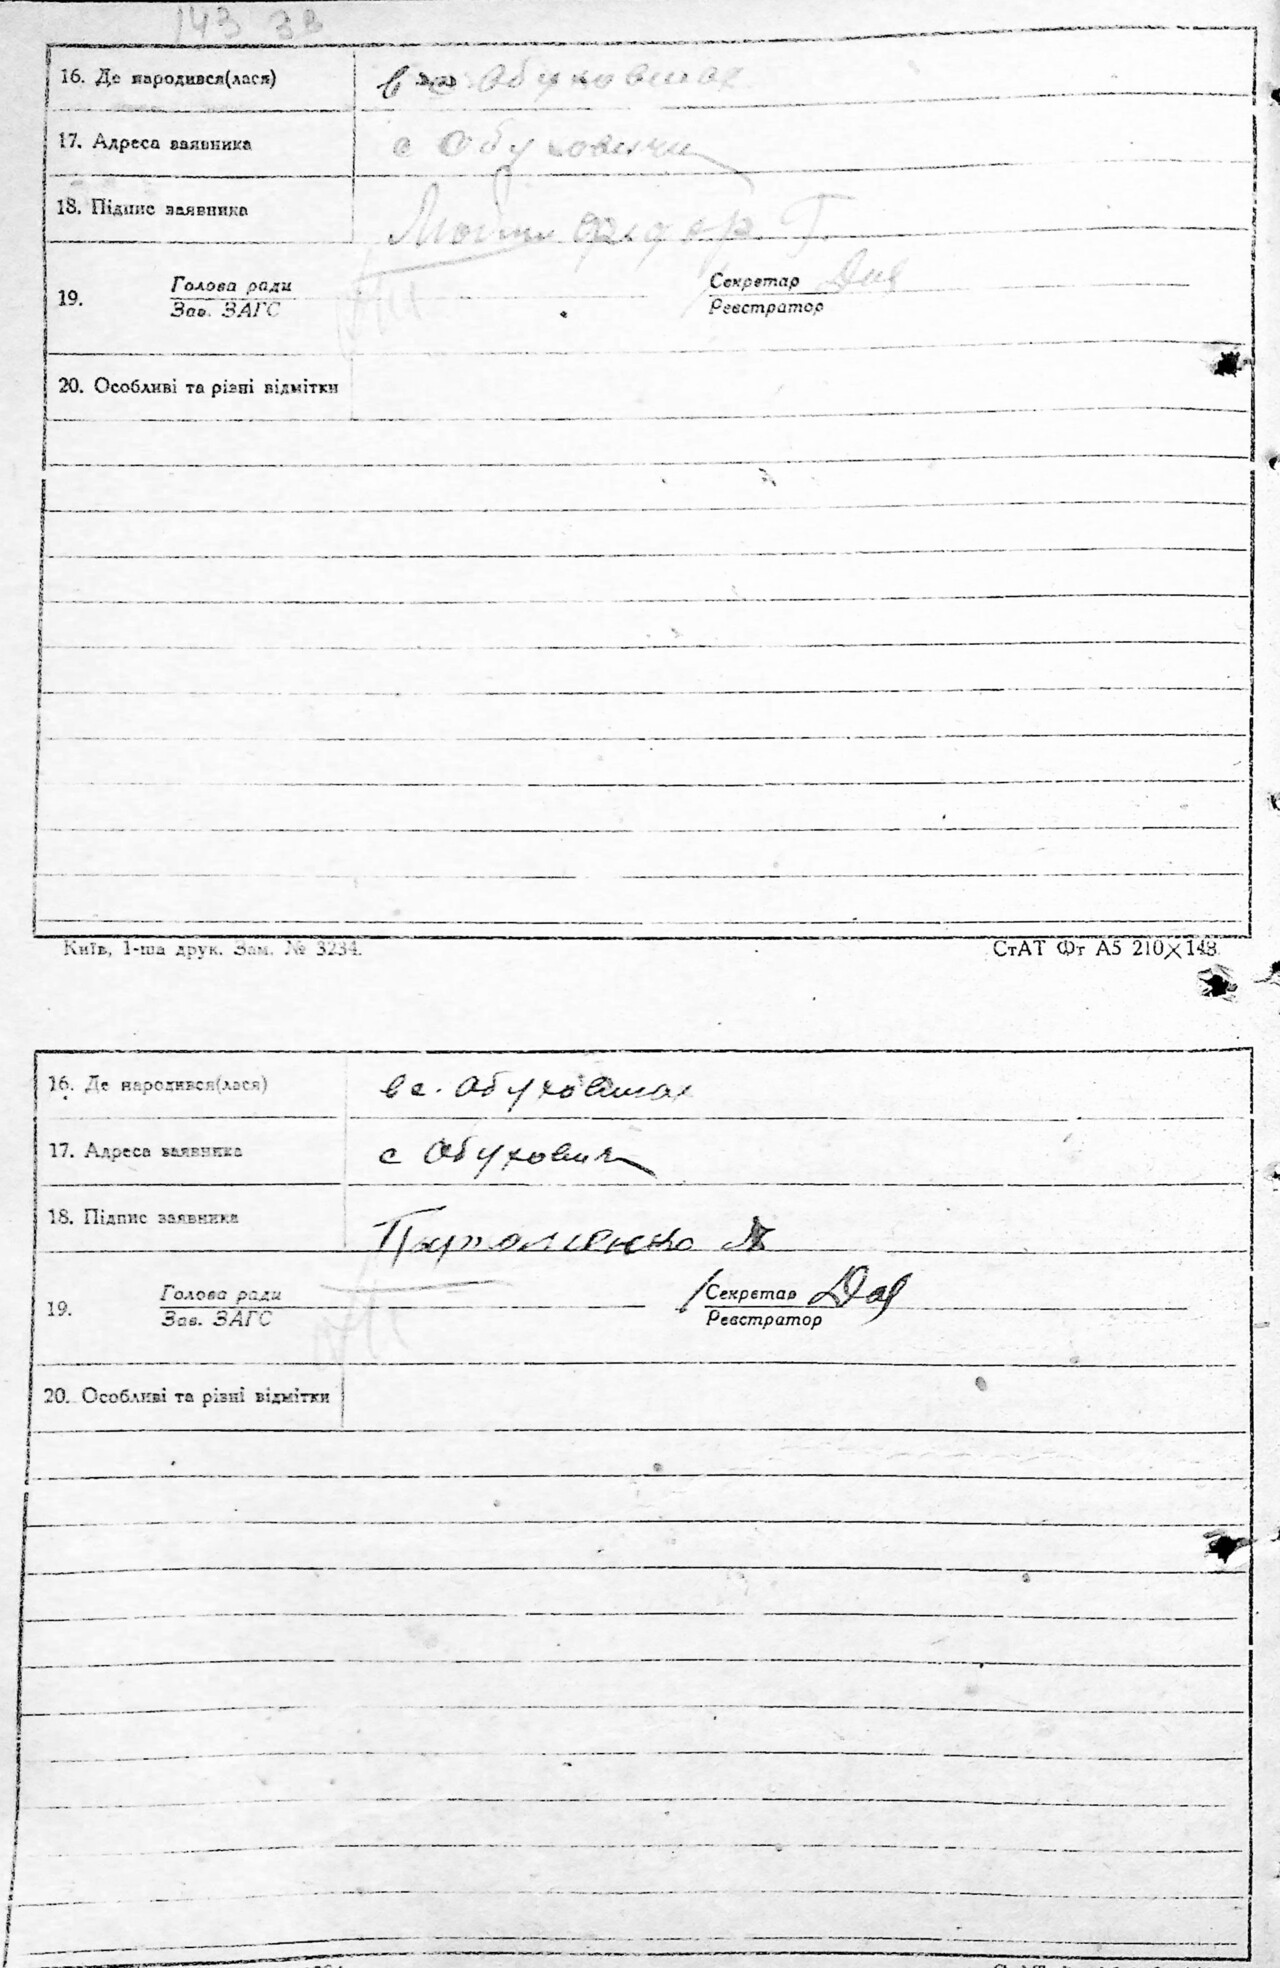 143 зв
16. Де народився(лася) в с. Обуховичах
17. Адреса заявника с Обуховичи
18. Підпис заявника Федор Г.
19. Голова ради Секретар
Зав. ЗАГС Реєстратор
20. Особливі та різні відмітки
Київ, 1-ша друк. Зам. № 3234. СтАТ Фт А5 210×148
16. Де народився(лася) в с. Обуховичах
17. Адреса заявника с Обуховичи
18. Підпис заявника
19. Голова ради Секретар
Зав. ЗАГС Реєстратор
20. Особливі та різні відмітки